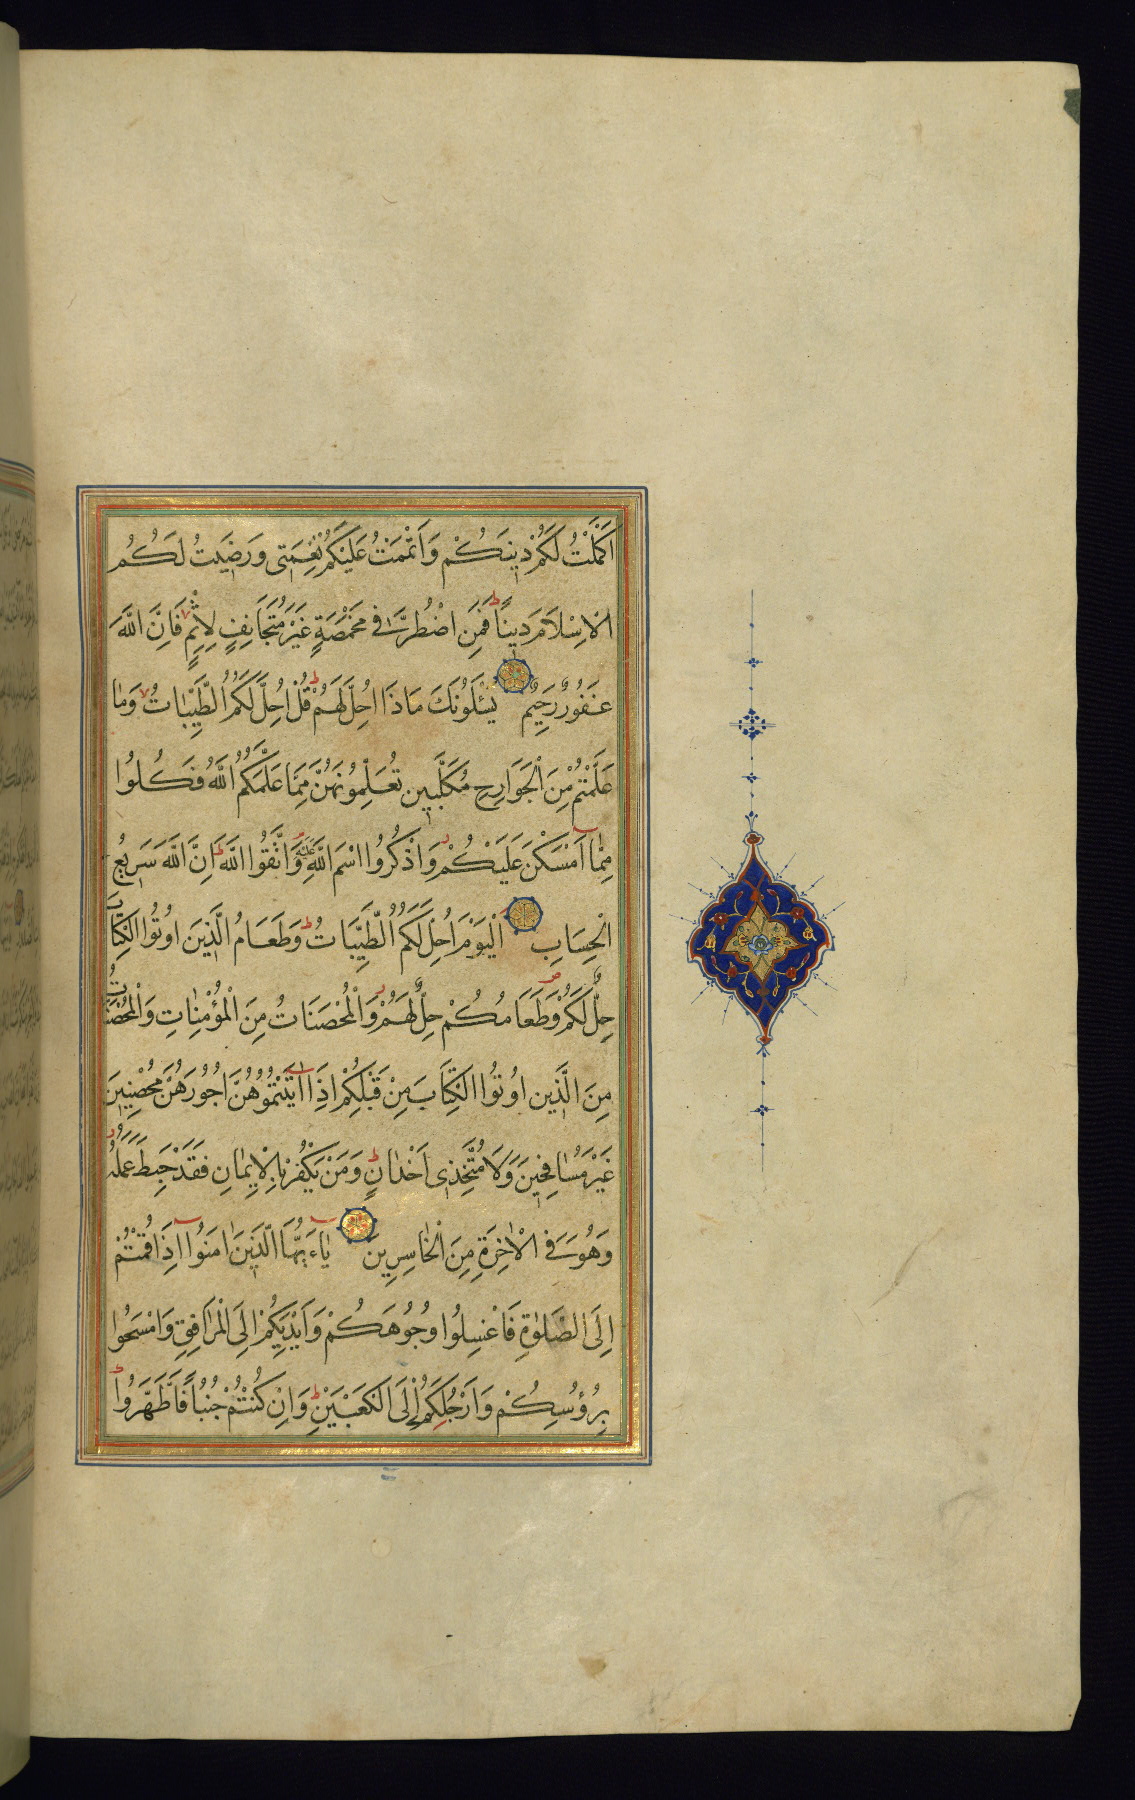 اَكْمَلْتُ لَكُمْ دِينَكُمْ وَاَتْمَمْتُ عَلَيْكُمْ نِعْمَتِى وَرَضِيتُ لَكُمُ
الْاِسْلَامَ دِينًا فَمَنِ اضْطُرَّ فِى مَخْمَصَةٍ غَيْرَ مُتَجَانِفٍ لِاِثْمٍ فَاِنَّ اللّٰهَ
غَفُورٌ رَحِيمٌ يَسْئَلُونَكَ مَاذَا اُحِلَّ لَهُمْ قُلْ اُحِلَّ لَكُمُ الطَّيِّبَاتُ وَمَا
عَلَّمْتُمْ مِنَ الْجَوَارِحِ مُكَلِّبِينَ تُعَلِّمُونَهُنَّ مِمَّا عَلَّمَكُمُ اللّٰهُ فَكُلُوا
مِمَّا اَمْسَكْنَ عَلَيْكُمْ وَاذْكُرُوا اسْمَ اللّٰهِ عَلَيْهِ وَاتَّقُوا اللّٰهَ اِنَّ اللّٰهَ سَرِيعُ
الْحِسَابِ اَلْيَوْمَ اُحِلَّ لَكُمُ الطَّيِّبَاتُ وَطَعَامُ الَّذِينَ اُوتُوا الْكِتَابَ
حِلٌّ لَكُمْ وَطَعَامُكُمْ حِلٌّ لَهُمْ وَالْمُحْصَنَاتُ مِنَ الْمُؤْمِنَاتِ وَالْمُحْصَنَاتُ
مِنَ الَّذِينَ اُوتُوا الْكِتَابَ مِنْ قَبْلِكُمْ اِذَا اٰتَيْتُمُوهُنَّ اُجُورَهُنَّ مُحْصِنِينَ
غَيْرَ مُسَافِحِينَ وَلَا مُتَّخِذِى اَخْدَانٍ وَمَنْ يَكْفُرْ بِالْاِيمَانِ فَقَدْ حَبِطَ عَمَلُهُ
وَهُوَ فِى الْاٰخِرَةِ مِنَ الْخَاسِرِينَ يَاءَيُّهَا الَّذِينَ اٰمَنُوا اِذَا قُمْتُمْ
اِلَى الصَّلٰوةِ فَاغْسِلُوا وُجُوهَكُمْ وَاَيْدِيَكُمْ اِلَى الْمَرَافِقِ وَامْسَحُوا
بِرُؤُسِكُمْ وَاَرْجُلَكُمْ اِلَى الْكَعْبَيْنِ وَاِنْ كُنْتُمْ جُنُبًا فَاطَّهَّرُوا